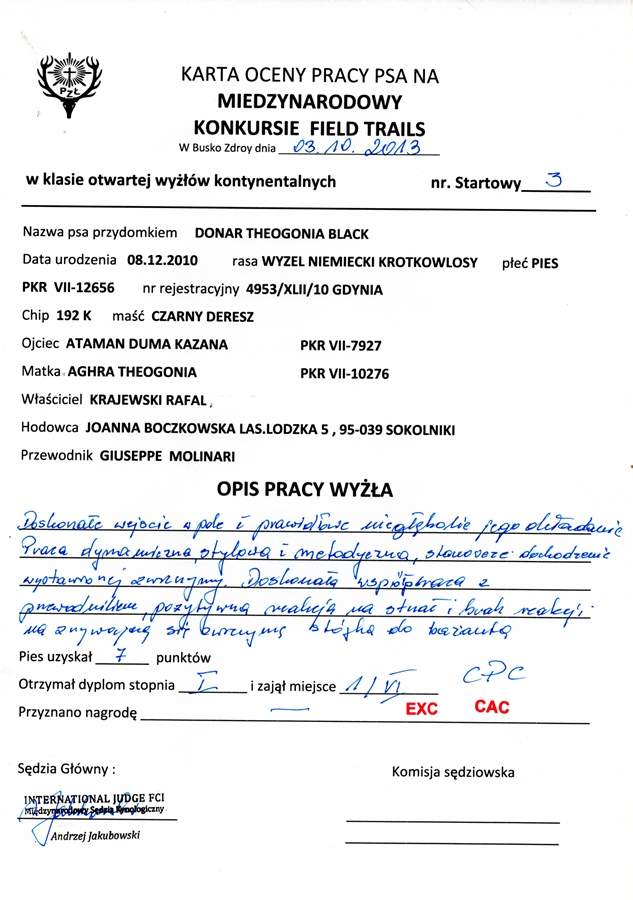 PZŁ
KARTA OCENY PRACY PSA NA
MIEDZYNARODOWY
KONKURSIE FIELD TRAILS
W Busko Zdroy dnia 03.10.2013
w klasie otwartej wyżłów kontynentalnych nr. Startowy 3
Nazwa psa przydomkiem DONAR THEOGONIA BLACK
Data urodzenia 08.12.2010 rasa WYZEL NIEMIECKI KROTKOWLOSY płeć PIES
PKR VII-12656 nr rejestracyjny 4953/XLII/10 GDYNIA
Chip 192 K maść CZARNY DERESZ
Ojciec ATAMAN DUMA KAZANA PKR VII-7927
Matka AGHRA THEOGONIA PKR VII-10276
Właściciel KRAJEWSKI RAFAL
Hodowca JOANNA BOCZKOWSKA LAS.LODZKA 5 , 95-039 SOKOLNIKI
Przewodnik GIUSEPPE MOLINARI
OPIS PRACY WYŻŁA
Doskonałe wejście w pole i prawidłowe niegłębokie jego okładanie
Praca dynamiczna, stylowa i metodyczna, stanowcze dochodzenie
wystawionej zwierzyny. Doskonała współpraca z
przewodnikiem, pozytywna reakcja na strzał i brak reakcji
na zrywającą się zwierzynę stójka do bażanta
Pies uzyskał 7 punktów
Otrzymał dyplom stopnia I i zajął miejsce 1/VI CPC
Przyznano nagrodę — EXC CAC
Sędzia Główny :
Komisja sędziowska
INTERNATIONAL JUDGE FCI
Międzynarodowy Sędzia Kynologiczny
Andrzej Jakubowski